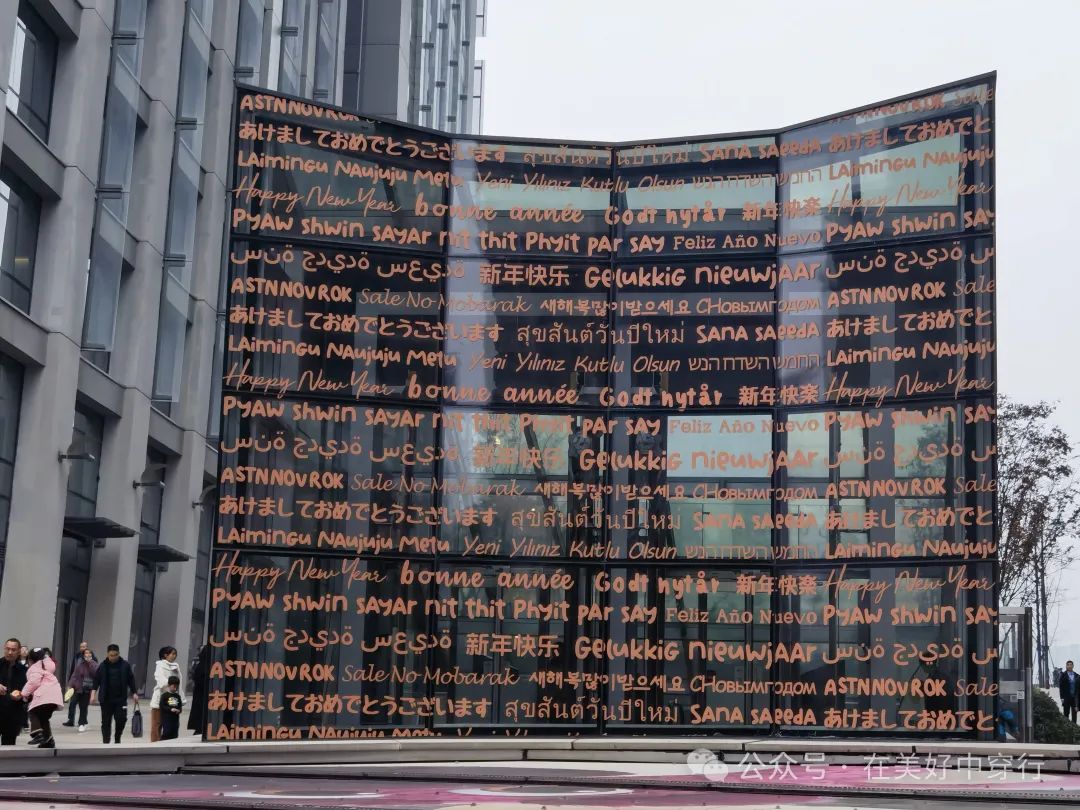 ASTNNOVROK Sale
あけましておめでとうございます สุขสันต์วันปีใหม่ SANA SAEEDA あけましておめでと
LAimingu NAujuju Metu Yeni Yılınız Kutlu Olsun LAimingu NAujuju
Happy New Year bonne année Godt nytår 新年快楽 Happy New Year
PYAW shwin SAYAR nit thit Phyit PAR SAY Feliz Año Nuevo PYAW shwin SAY
سنة جديدة سعيدة 新年快乐 Gelukkig NieuwjAAr سنة جديدة س
ASTNNOVROK Sale No Mobarak 새해복많이받으세요 СНОВЫМГОДОМ ASTNNOVROK Sale
あけましておめでとうございます สุขสันต์วันปีใหม่ SANA SAEEDA あけましておめでと
LAimingu NAujuju Metu Yeni Yılınız Kutlu Olsun LAimingu NAujuju
Happy New Year bonne année Godt nytår 新年快楽 Happy New Year
PYAW shwin SAYAR nit thit Phyit PAR SAY Feliz Año Nuevo PYAW shwin SA
سنة جديدة سعيدة 新年快乐 Gelukkig NieuwjAAr سنة جديدة س
ASTNNOVROK Sale No Mobarak 새해복많이받으세요 СНОВЫМГОДОМ ASTNNOVROK Sale
あけましておめでとうございます สุขสันต์วันปีใหม่ SANA SAEEDA あけましておめでと
LAimingu NAujuju Metu Yeni Yılınız Kutlu Olsun LAimingu NAujuju
Happy New Year bonne année Godt nytår 新年快楽 Happy New Year
PYAW shwin SAYAR nit thit Phyit PAR SAY Feliz Año Nuevo PYAW shwin SA
سنة جديدة سعيدة 新年快乐 Gelukkig NieuwjAAr سنة جديدة س
ASTNNOVROK Sale No Mobarak 새해복많이받으세요 СНОВЫМГОДОМ ASTNNOVROK Sale
あけましておめでとうございます สุขสันต์วันปีใหม่ SANA SAEEDA あけましておめでと
LAimingu NAujuju Metu
公众号·在美好中穿行